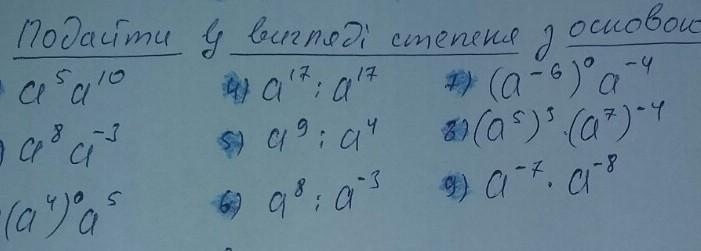 Подайти у вигляді степеня з основою
a⁵a¹⁰ 4) a¹⁷ : a¹⁷ 7) (a⁻⁶)⁰ a⁻⁴
) a⁸ a⁻³ 5) a⁹ : a⁴ 8) (a⁵)³ · (a⁷)⁻⁴
(a⁴)⁰ a⁵ 6) a⁸ : a⁻³ 9) a⁻⁷ · a⁻⁸